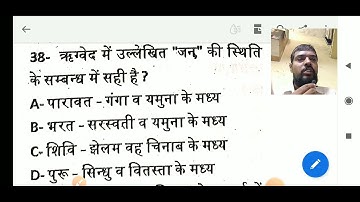 38- ऋग्वेद में उल्लेखित "जन्" की स्थिति
के सम्बन्ध में सही है ?
A- पारावत - गंगा व यमुना के मध्य
B- भरत - सरस्वती व यमुना के मध्य
C- शिवि - झेलम वह चिनाब के मध्य
D- पुरू - सिन्धु व वितस्ता के मध्य